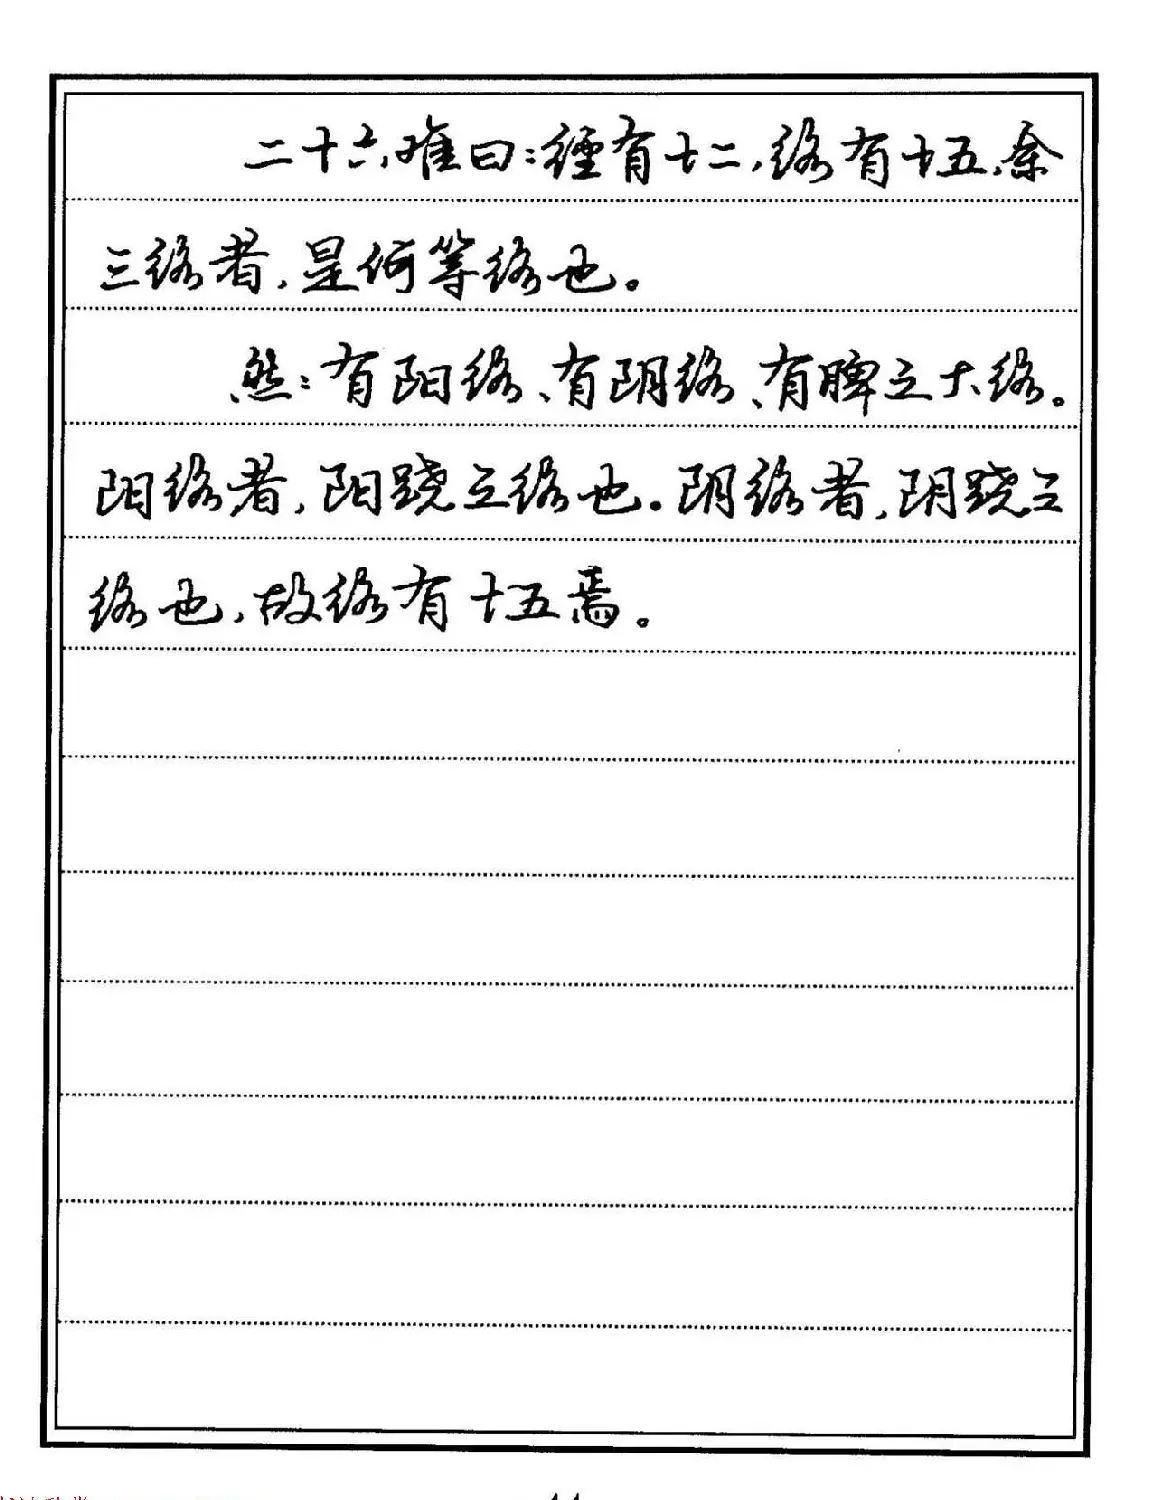 二十六难曰:經有十二,络有十五,余
三络者,是何等络也。
然:有阳络、有阴络、有脾之大络。
阳络者,阳跷之络也。阴络者,阴跷之
络也,故络有十五焉。